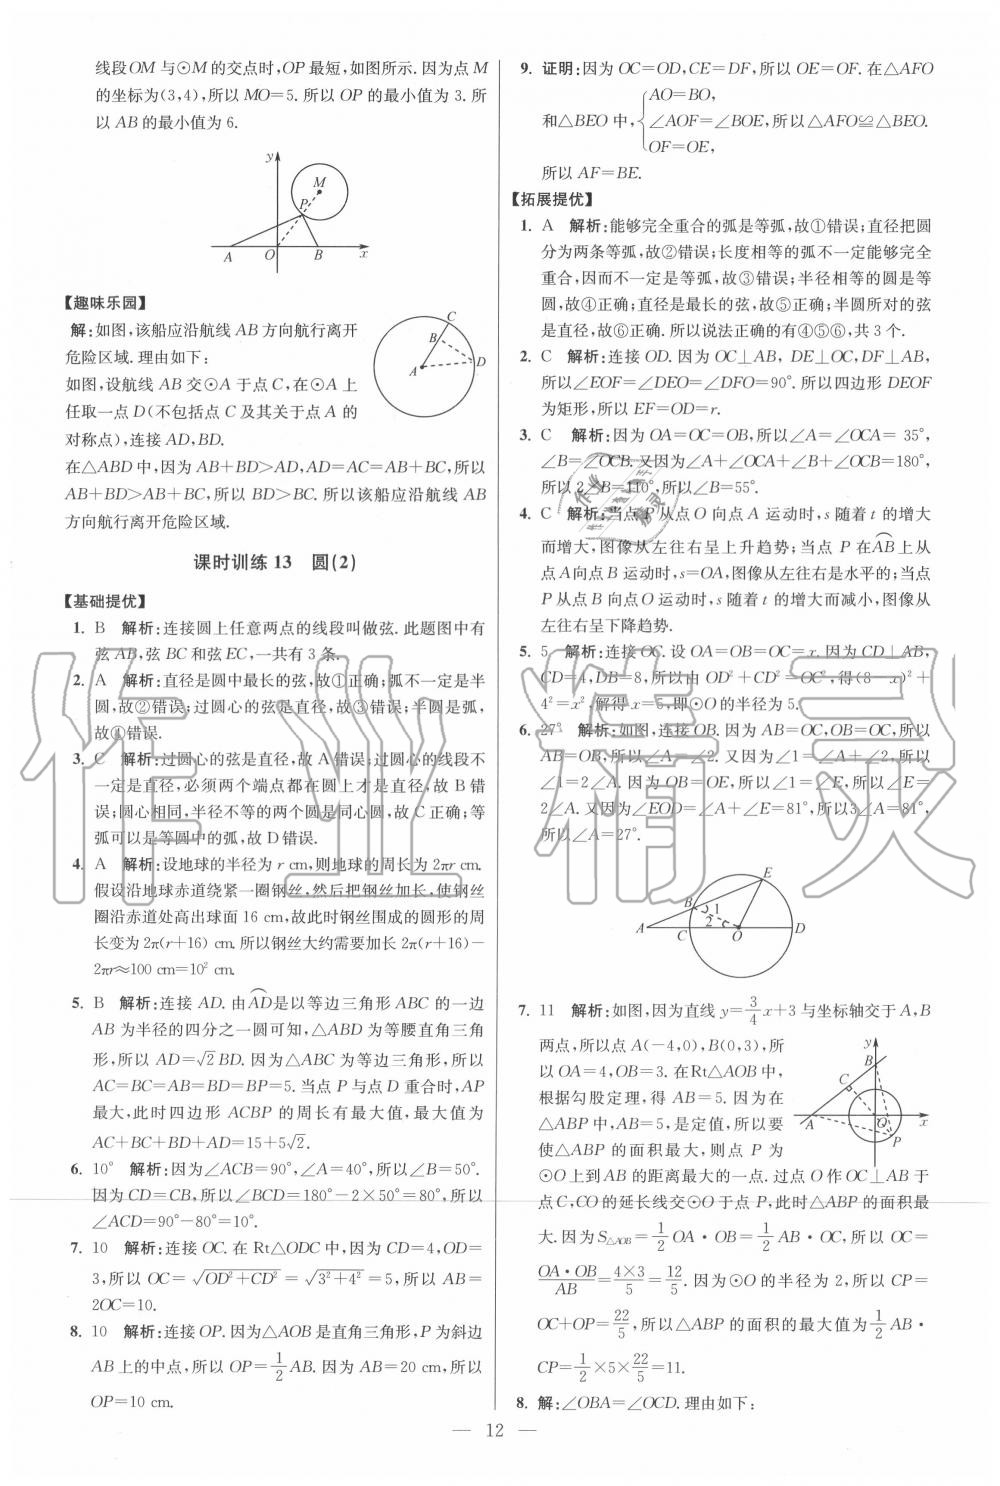 线段OM与⊙M的交点时,OP最短,如图所示.因为点M
的坐标为(3,4),所以MO=5.所以OP的最小值为3.所
以AB的最小值为6.
y
M
P
A
O
B
x
【趣味乐园】
解:如图,该船应沿航线AB方向航行离开
危险区域.理由如下:
如图,设航线AB交⊙A于点C,在⊙A上
任取一点D(不包括点C及其关于点A的
对称点),连接AD,BD.
C
B
D
A
在△ABD中,因为AB+BD>AD,AD=AC=AB+BC,所以
AB+BD>AB+BC,所以BD>BC.所以该船应沿航线AB
方向航行离开危险区域.
课时训练13 圆(2)
【基础提优】
1. B 解析:连接圆上任意两点的线段叫做弦.此题图中有
弦AB,弦BC和弦EC,一共有3条.
2. A 解析:直径是圆中最长的弦,故①正确;弧不一定是半
圆,故②错误;过圆心的弦是直径,故③错误;半圆是弧,
故④错误.
3. C 解析:过圆心的弦是直径,故A错误;过圆心的线段不
一定是直径,必须两个端点都在圆上才是直径,故B错
误;圆心相同,半径不等的两个圆是同心圆,故C正确;等
弧可以是等圆中的弧,故D错误.
4. A 解析:设地球的半径为r cm,则地球的周长为2πr cm.
假设沿地球赤道绕紧一圈钢丝,然后把钢丝加长,使钢丝
圈沿赤道处高出球面16 cm,故此时钢丝围成的圆形的周
长变为2π(r+16) cm.所以钢丝大约需要加长2π(r+16)-
2πr≈100 cm=10² cm.
5. B 解析:连接AD.由⌒AD是以等边三角形ABC的一边
AB为半径的四分之一圆可知,△ABD为等腰直角三角
形,所以AD=√2BD.因为△ABC为等边三角形,所以
AC=BC=AB=BD=BP=5.当点P与点D重合时,AP
最大,此时四边形ACBP的周长有最大值,最大值为
AC+BC+BD+AD=15+5√2.
6. 10° 解析:因为∠ACB=90°,∠A=40°,所以∠B=50°.
因为CD=CB,所以∠BCD=180°-2×50°=80°,所以
∠ACD=90°-80°=10°.
7. 10 解析:连接OC.在Rt△ODC中,因为CD=4,OD=
3,所以OC=√(OD²+CD²)=√(3²+4²)=5,所以AB=
2OC=10.
8. 10 解析:连接OP.因为△AOB是直角三角形,P为斜边
AB上的中点,所以OP=1/2AB.因为AB=20 cm,所以
OP=10 cm.
9. 证明:因为OC=OD,CE=DF,所以OE=OF.在△AFO
和△BEO中,{AO=BO, ∠AOF=∠BOE, OF=OE,所以△AFO≌△BEO.
所以AF=BE.
【拓展提优】
1. A 解析:能够完全重合的弧是等弧,故①错误;直径把圆
分为两条等弧,故②错误;长度相等的弧不一定能够完全
重合,因而不一定是等弧,故③错误;半径相等的圆是等
圆,故④正确;直径是最长的弦,故⑤正确;半圆所对的弦
是直径,故⑥正确.所以说法正确的有④⑤⑥,共3个.
2. C 解析:连接OD.因为OC⊥AB, DE⊥OC,DF⊥AB,
所以∠EOF=∠DEO=∠DFO=90°.所以四边形DEOF
为矩形,所以EF=OD=r.
3. C 解析:因为OA=OC=OB,所以∠A=∠OCA= 35°,
∠B=∠OCB.又因为∠A+∠OCA+∠B+∠OCB=180°,
所以2∠B=110°,所以∠B=55°.
4. C 解析:当点P从点O向点A运动时,s随着t的增大
而增大,图像从左往右呈上升趋势;当点P在⌒AB上从
点A向点B运动时,s=OA,图像从左往右是水平的;当点
P从点B向点O运动时,s随着t的增大而减小,图像从
左往右呈下降趋势.
5. 5 解析:连接OC.设OA=OB=OC=x.因为CD⊥AB,
CD=4,DB=8,所以由OD²+CD²=OC²,得(8-x)²+
4²=x²,解得x=5,即⊙O的半径为5.
6. 27° 解析:如图,连接OB.因为AB=OC,OB=OC,所以
AB=OB,所以∠A=∠2.又因为∠1=∠A+∠2,所以
∠1=2∠A.因为OB=OE,所以∠1=∠E,所以∠E=
2∠A.又因为∠EOD=∠A+∠E=81°,所以3∠A=81°,
所以∠A=27°.
E
B
1
2
A
C
O
D
7. 11 解析:如图,因为直线y=3/4x+3与坐标轴交于A,B
两点,所以点A(-4,0),B(0,3),所
以OA=4,OB=3.在Rt△AOB中,
根据勾股定理,得AB=5.因为在
△ABP中,AB=5,是定值,所以要
使△ABP的面积最大,则点P为
y
B
C
A
O
x
P
⊙O上到AB的距离最大的一点.过点O作OC⊥AB于
点C,CO的延长线交⊙O于点P,此时△ABP的面积最
大.因为S△AOB=1/2OA·OB=1/2AB·OC,所以OC=
OA·OB/AB=4×3/5=12/5.因为⊙O的半径为2,所以CP=
OC+OP=22/5,所以△ABP的面积的最大值为1/2AB·
CP=1/2×5×22/5=11.
8. 解:∠OBA=∠OCD.理由如下:
— 12 —
作业精灵